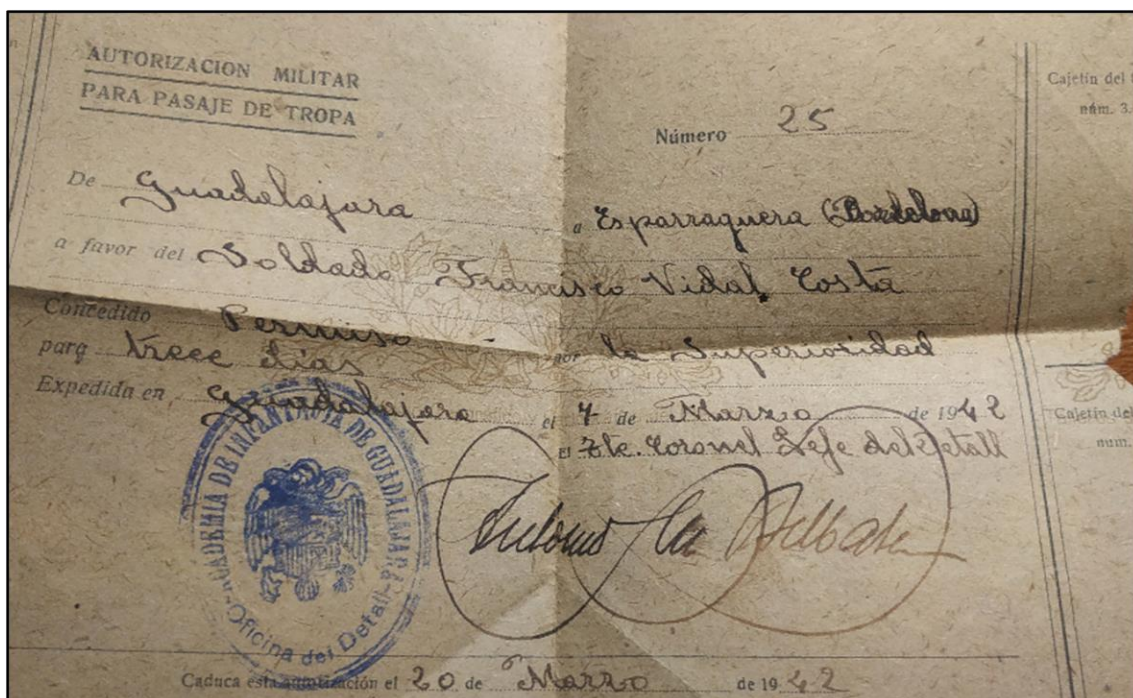 AUTORIZACION MILITAR
PARA PASAJE DE TROPA
Número 25
Cajetín del
núm. 3.
De Guadalajara a Esparraguera (Barcelona)
a favor del Soldado Francisco Vidal Costa
Concedido Permiso por la Superioridad
para trece días
Expedida en Guadalajara el 7 de Marzo de 1942
El Tte. Coronel Jefe del Detall
Cajetín del
num.
ACADEMIA DE INFANTERIA DE GUADALAJARA
Oficina del Detall
Antonio
Caduca esta autorización el 20 de Marzo de 1942